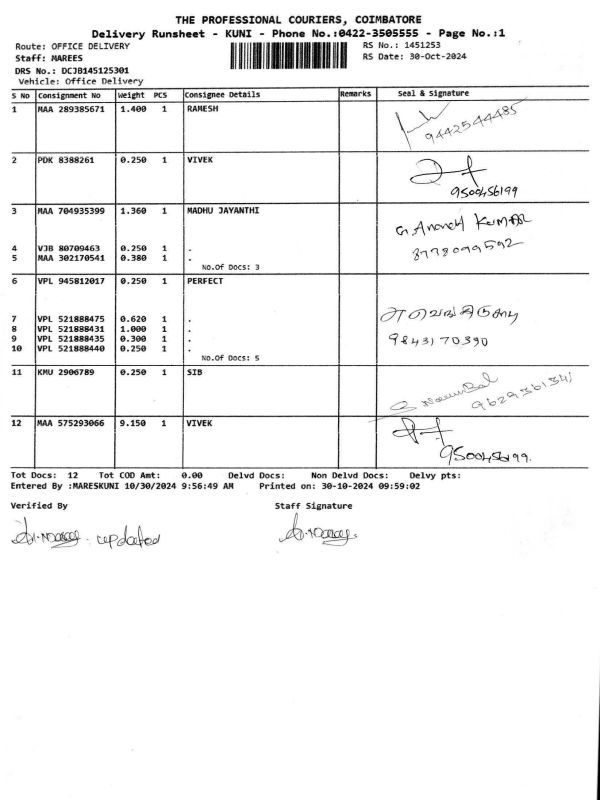 THE PROFESSIONAL COURIERS, COIMBATORE
Delivery Runsheet - KUNI - Phone No.:0422-3505555 - Page No.:1
Route: OFFICE DELIVERY RS No.: 1451253
Staff: MAREES RS Date: 30-Oct-2024
DRS No.: DCJB145125301
Vehicle: Office Delivery
S No Consignment No Weight PCS Consignee Details Remarks Seal & Signature
1 MAA 289385671 1.400 1 RAMESH
9442544485
2 PDK 8388261 0.250 1 VIVEK
9500456199
3 MAA 704935399 1.360 1 MADHU JAYANTHI
G. Anand KUMAR
8778099592
4 VJB 80709463 0.250 1 .
5 MAA 302170541 0.380 1 .
No.Of Docs: 3
6 VPL 945812017 0.250 1 PERFECT
7 VPL 521888475 0.620 1 .
8 VPL 521888431 1.000 1 .
9 VPL 521888435 0.300 1 . 9843170390
10 VPL 521888440 0.250 1 .
No.Of Docs: 5
11 KMU 2906789 0.250 1 SIB
9629361341
12 MAA 575293066 9.150 1 VIVEK
9500456199.
Tot Docs: 12 Tot COD Amt: 0.00 Delvd Docs: Non Delvd Docs: Delvy pts:
Entered By :MARESKUNI 10/30/2024 9:56:49 AM Printed on: 30-10-2024 09:59:02
Verified By Staff Signature
updated